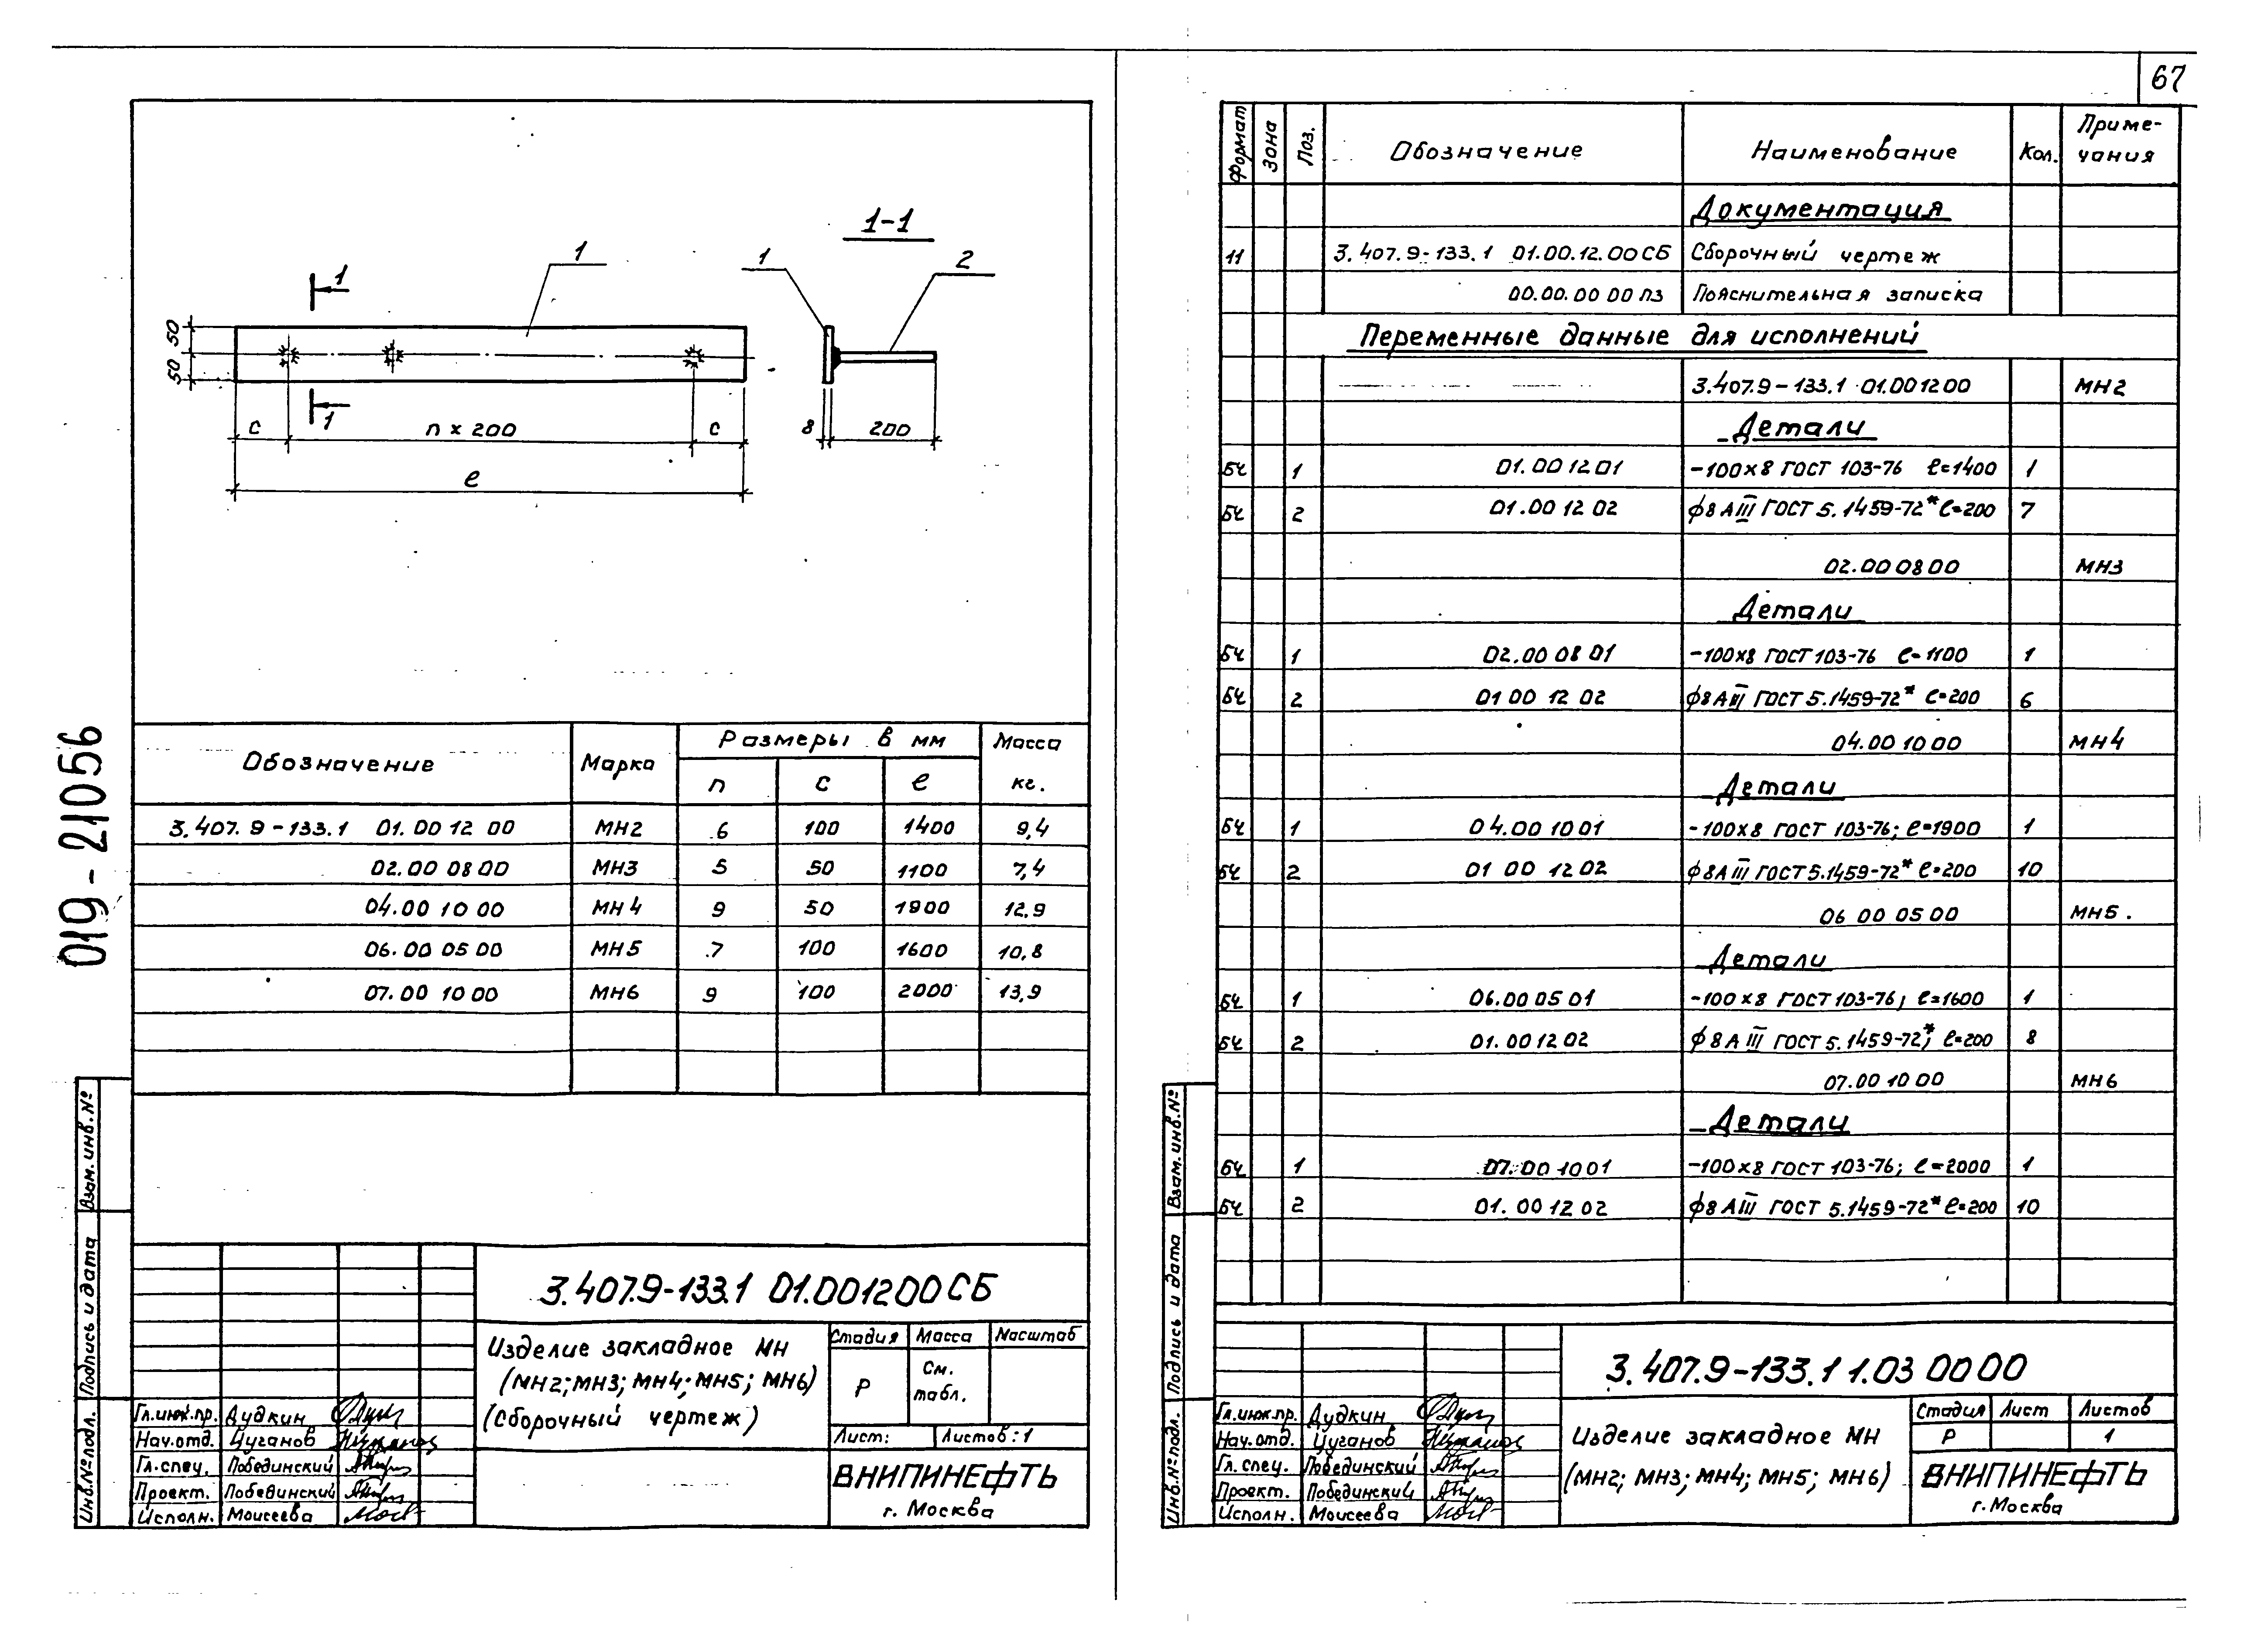 67
1-1
1
1
1
2
50
50
1
с
n × 200
с
8
200
ℓ
019-21056
Обозначение
Марка
Размеры в мм
Масса
кг.
n
с
ℓ
3.407.9-133.1 01.00 12 00 МН2 6 100 1400 9,4
02.00 08 00 МН3 5 50 1100 7,4
04.00 10 00 МН4 9 50 1900 12,9
06.00 05 00 МН5 7 100 1600 10,8
07.00 10 00 МН6 9 100 2000 13,9
Взам.инв.№
Подпись и дата
Инв.№подл.
3.407.9-133.1 01.001200СБ
Изделие закладное МН
(МН2; МН3; МН4; МН5; МН6)
(Сборочный чертеж)
Стадия Масса Масштаб
Р
См.
табл.
Лист: Листов:1
ВНИПИНЕФТЬ
г. Москва
Гл.инж.пр. Дудкин
Нач.отд. Цуганов
Гл.спец. Побединский
Проект. Побединский
Исполн. Моисеева
Формат
Зона
Поз.
Обозначение
Наименование
Кол.
Приме-
чания
Документация
11 3.407.9-133.1 01.00.12.00СБ Сборочный чертеж
00.00.00 00 ПЗ Пояснительная записка
Переменные данные для исполнений
3.407.9-133.1 01.001200 МН2
Детали
БЧ 1 01.00 12 01 -100×8 ГОСТ 103-76 ℓ=1400 1
БЧ 2 01.00 12 02 ϕ8 АIII ГОСТ 5.1459-72* ℓ=200 7
02.00 08 00 МН3
Детали
БЧ 1 02.00 08 01 -100×8 ГОСТ 103-76 ℓ=1100 1
БЧ 2 01 00 12 02 ϕ8 АIII ГОСТ 5.1459-72* ℓ=200 6
04.00 10 00 МН4
Детали
БЧ 1 04.00 10 01 -100×8 ГОСТ 103-76; ℓ=1900 1
БЧ 2 01 00 12 02 ϕ8 АIII ГОСТ 5.1459-72* ℓ=200 10
06 00 05 00 МН5.
Детали
БЧ 1 06.00 05 01 -100×8 ГОСТ 103-76; ℓ=1600 1
БЧ 2 01.00 12 02 ϕ8 АIII ГОСТ 5.1459-72*; ℓ=200 8
07.00 10 00 МН6
Детали
БЧ 1 07.00 10 01 -100×8 ГОСТ 103-76; ℓ=2000 1
БЧ 2 01.00 12 02 ϕ8 АIII ГОСТ 5.1459-72* ℓ=200 10
Взам.инв.№
Подпись и дата
Инв.№подл.
3.407.9-133.1 1.03 00 00
Изделие закладное МН
(МН2; МН3; МН4; МН5; МН6)
Стадия Лист Листов
Р 1
ВНИПИНЕФТЬ
г. Москва
Гл.инж.пр. Дудкин
Нач.отд. Цуганов
Гл.спец. Побединский
Проект. Побединский
Исполн. Моисеева